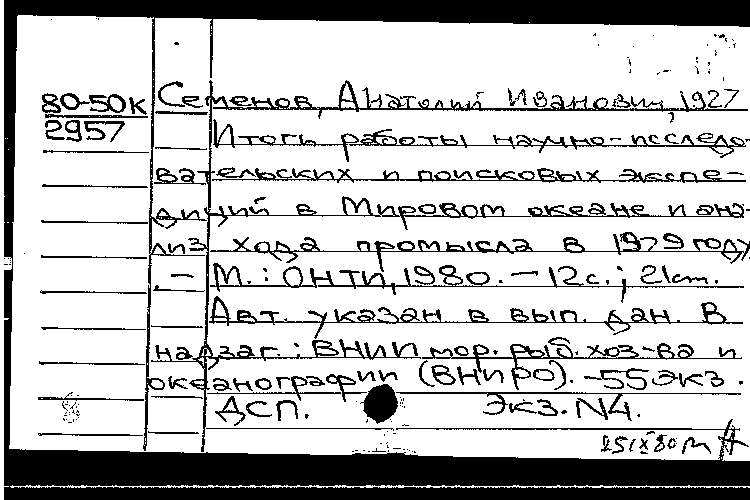 80-50к
2957
Семенов, Анатолий Иванович, 1927
Итоги работы научно-исследо-
вательских и поисковых экспе-
диций в Мировом океане и ана-
лиз хода промысла в 1979 году
. - М.: ОНТИ, 1980. - 12с.; 21cm.
Авт. указан в вып. дан. В
надзаг.: ВНИИ мор. рыб. хоз-ва и
океанографии (ВНИРО). -55 экз.
ДСП. Экз. N4.